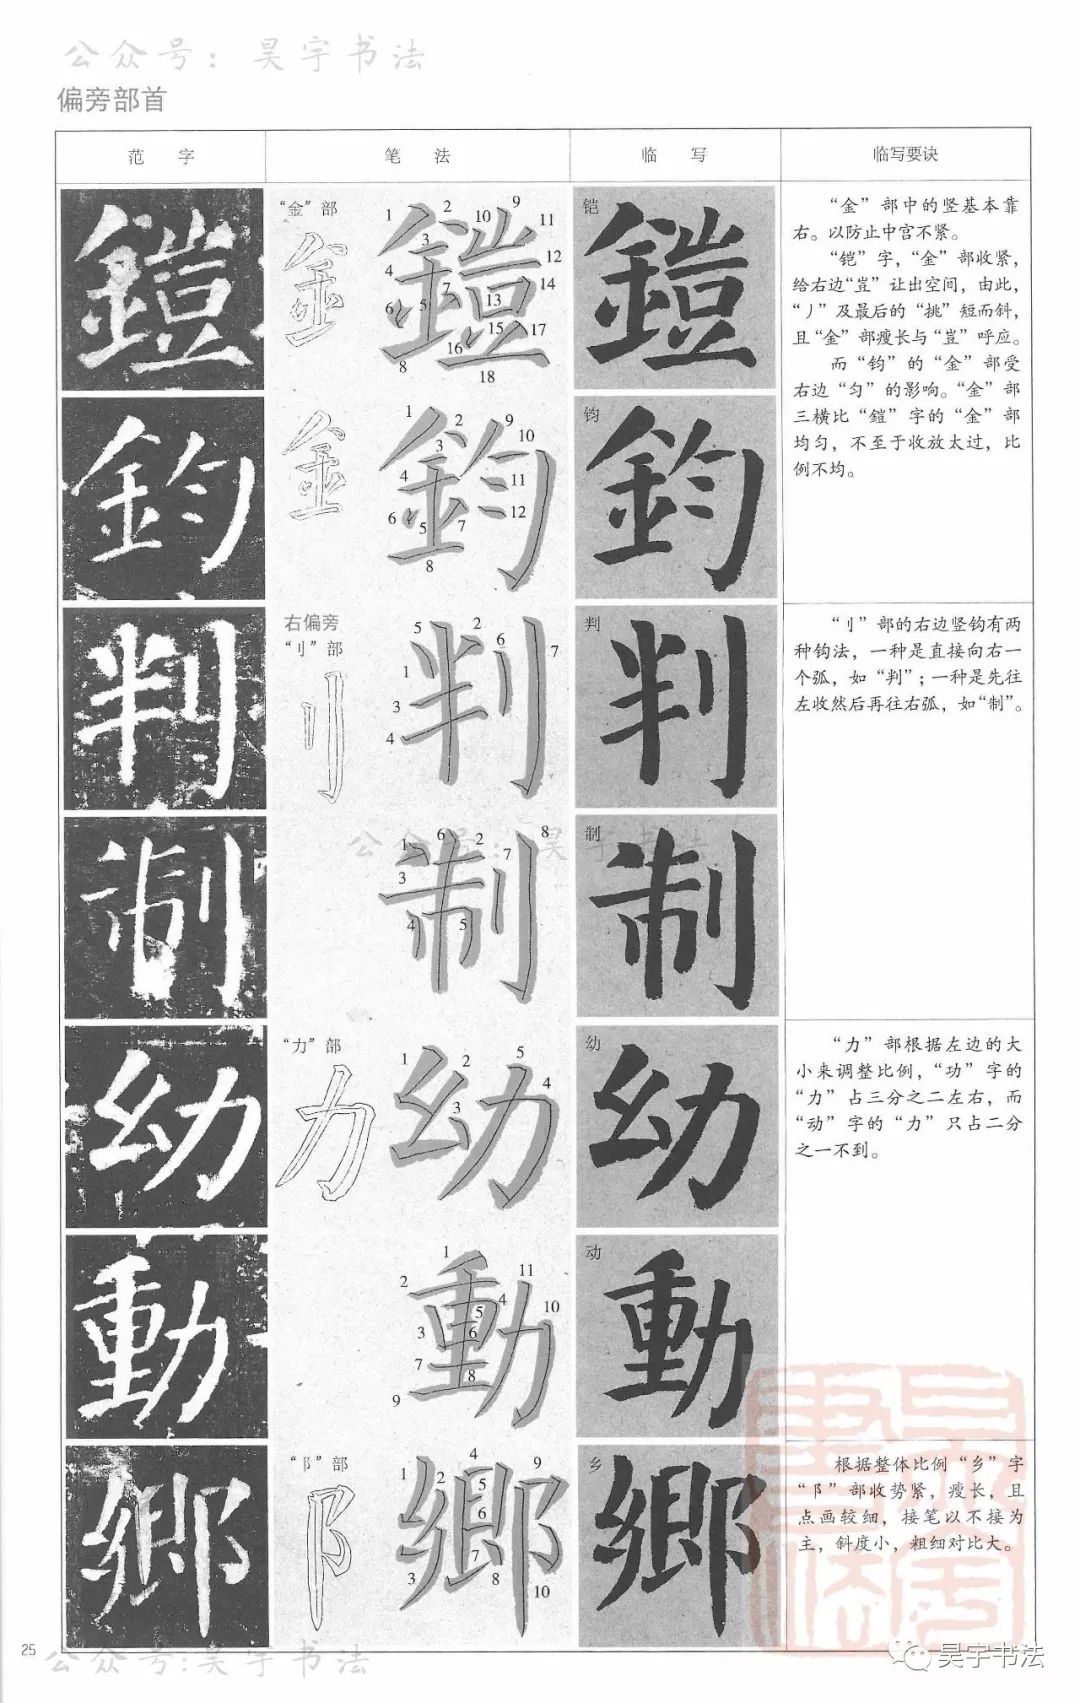 公众号：昊宇书法
偏旁部首
范 字
笔 法
临 写
临写要诀
鎧
“金”部
金
1 2 3 4 5 6 7 8 9 10 11 12 13 14 15 16 17 18
鎧
铠
鎧
“金”部中的竖基本靠
右。以防止中宫不紧。
“铠”字，“金”部收紧，
给右边“豈”让出空间，由此，
“丿”及最后的“挑”短而斜，
且“金”部瘦长与“豈”呼应。
而“钧”的“金”部受
右边“匀”的影响。“金”部
三横比“鎧”字的“金”部
均匀，不至于收放太过，比
例不均。
鈞
金
1 2 3 4 5 6 7 8 9 10 11 12
鈞
钧
鈞
判
右偏旁
“刂”部
刂
1 2 3 4 5 6 7
判
判
判
“刂”部的右边竖钩有两
种钩法，一种是直接向右一
个弧，如“判”；一种是先往
左收然后再往右弧，如“制”。
制
公众号：昊宇书法
1 2 3 4 5 6 7 8
制
制
制
幼
“力”部
力
1 2 3 4 5
幼
幼
幼
“力”部根据左边的大
小来调整比例，“功”字的
“力”占三分之二左右，而
“动”字的“力”只占二分
之一不到。
動
1 2 3 4 5 6 7 8 9 10 11
動
动
動
鄉
“阝”部
阝
1 2 3 4 5 6 7 8 9 10
鄉
乡
鄉
根据整体比例“乡”字
“阝”部收势紧，瘦长，且
点画较细，接笔以不接为
主，斜度小，粗细对比大。
25
公众号:昊宇书法
昊宇书法